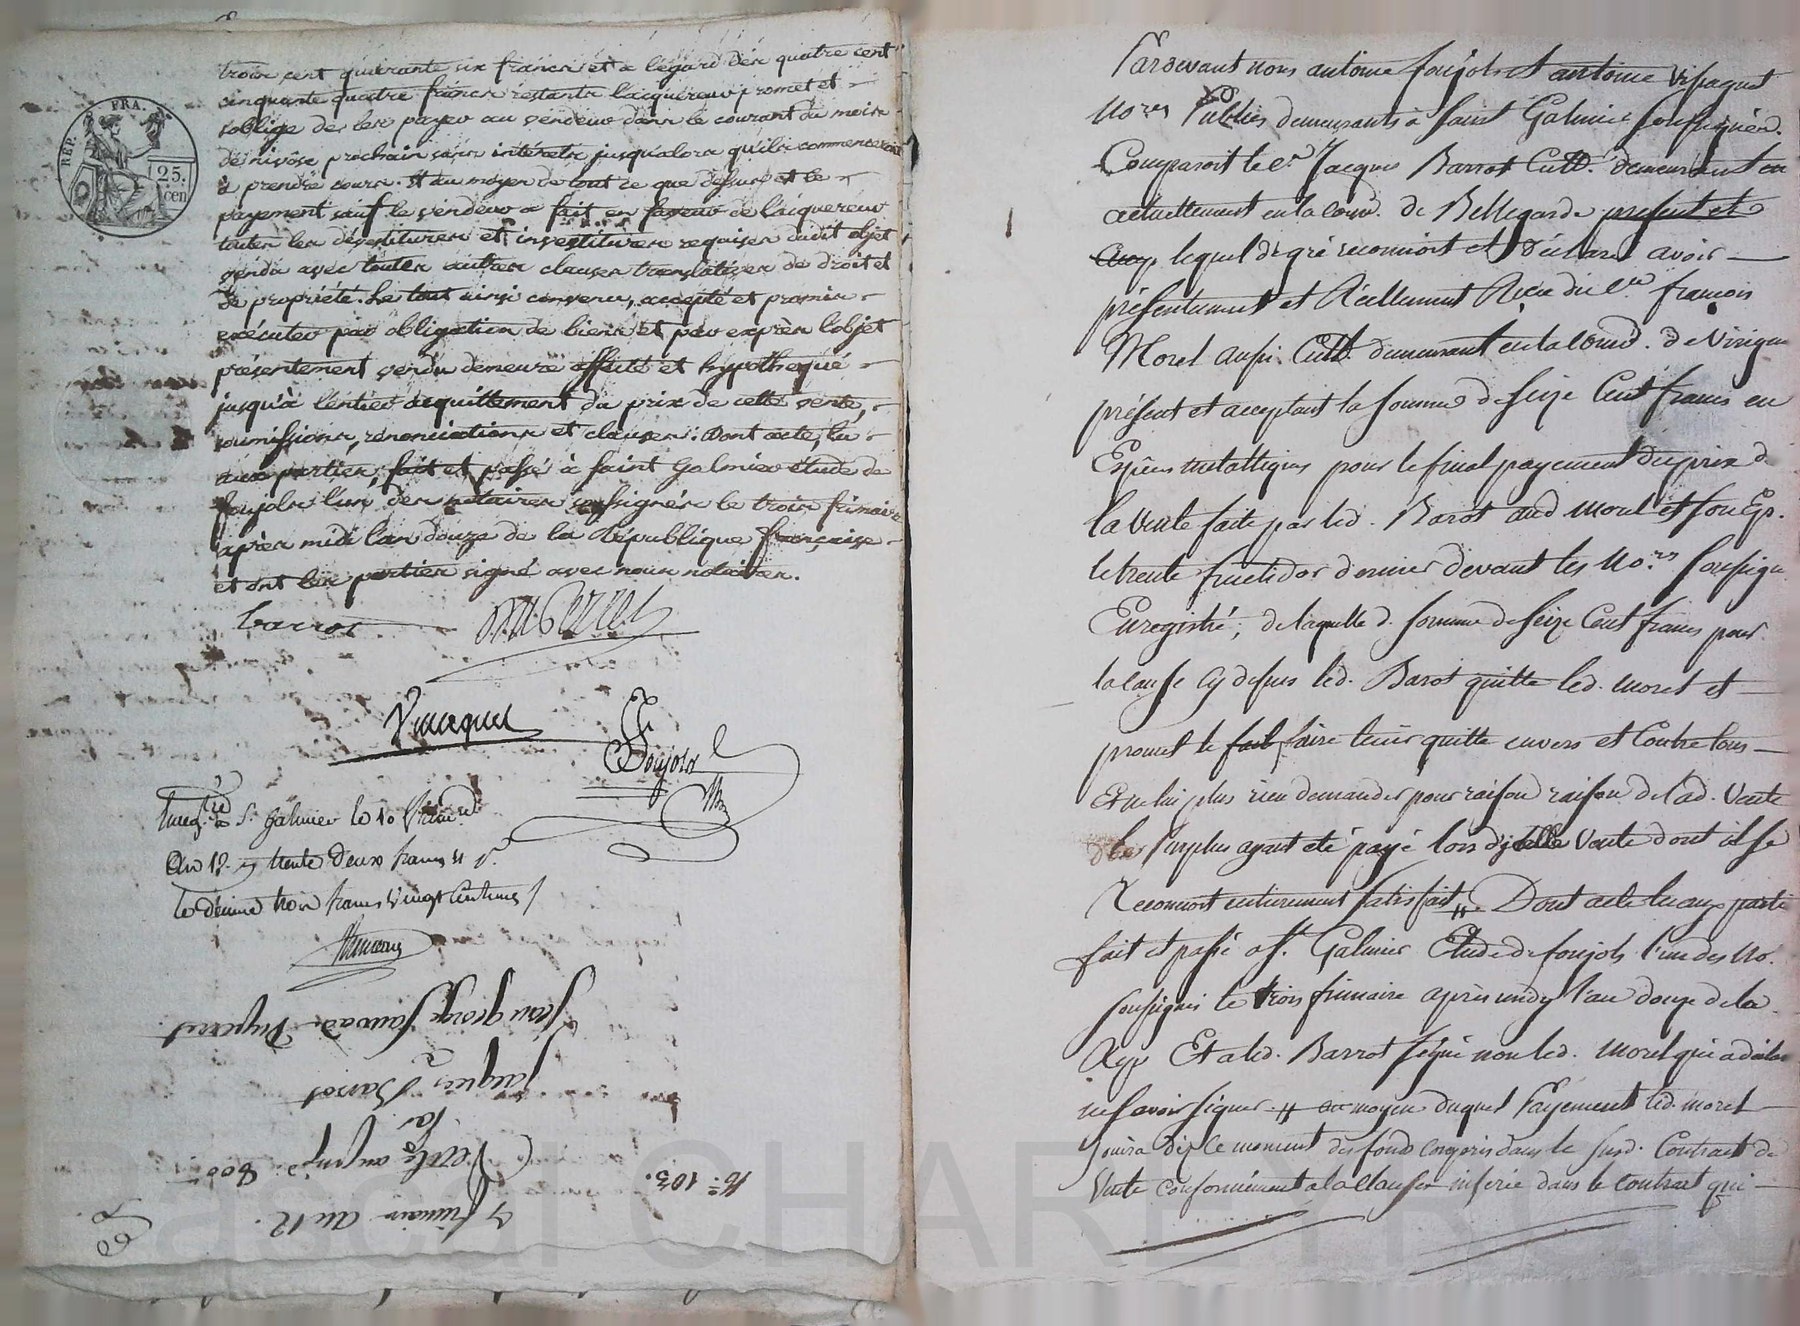 REP. FRA.
25. cen
trois cent quarante six francs et a légard des quatre cent
cinquante quatre francs restants lacquereur promet et
soblige de les payer au vendeur dans le courant du mois
de nivôse prochain sans intérets jusqualors qu'ils commenceront
à prendre cours. Et au moyen de tout ce que dessus et le
payement sauf le vendeur a fait en faveur de lacquereur
toutes les dévestitures et investitures requises dudit objet
vendu avec toutes autres clauses translatives de droit et
de propriété. Le tout ainsi convenu, accepté et promis
exécuter par obligation de biens et par exprès l'objet
présentement vendu demeure affecté et hypothequé
jusqu'à l'entier acquittement du prix de cette vente,
soumissions, rénonciations et clauses. Dont acte, lu
aux parties, fait et passé à saint Galmier étude de
foujols l'un des notaires soussignés le trois frimaire
après midi l'an douze de la République française
et ont les parties signé avec nous notaires.
barrot
Foujols
Enreg. à St. galmier le 10 frimaire
An 12. trente deux francs
le decime trois francs vingt centimes
N° 103.
3 frimaire an 12.
Vente au prix de 800
Par
jacques Barrot
a
Jean george
Pardevant nous antoine foujols et antoine
No.res Publics demeurants à Saint Galmier soussignés.
Comparoit le C.en Jacques Barrot Cult. demeurant en
actuellement en la comd. de Bellegarde present et
acep lequel de gré reconnoit et déclare avoir
présentement et Réellement Reçu du C.en françois
Morel aussi Cult. demeurant en la comd. de Virigneu
présent et acceptant la somme de Seize Cent francs en
Espèces metalliques pour le final payement du prix de
la vente faite par led. Barot aud morel et son Ep.
le trente fructidor dernier devant les No.res soussignés
Enregistré; de laquelle d. somme de Seize Cent francs pour
la cause cy dessus led. Barot quitte led. morel et
promet le fait, faire tenir quitte envers et Contre tous
Et ne lui plus rien demander pour raison raison de lad. Vente
le surplus ayant eté payé lors d'icelle Vente dont il se
Reconnoit entierement satisfait. Dont acte lu aux partie
fait et passé a St. Galmier Etude de foujols l'un des No.
soussignés le trois frimaire après midy l'an douze de la
Rep Et a led. Barrot signé non led. morel qui a déclaré
ne savoir signer. au moyen duquel Payement led. morel
jouira dès ce moment des fonds compris dans le susd. Contrat de
Vente conformément a la clause inserée dans le contrat qui
Pascal CHAREYRON